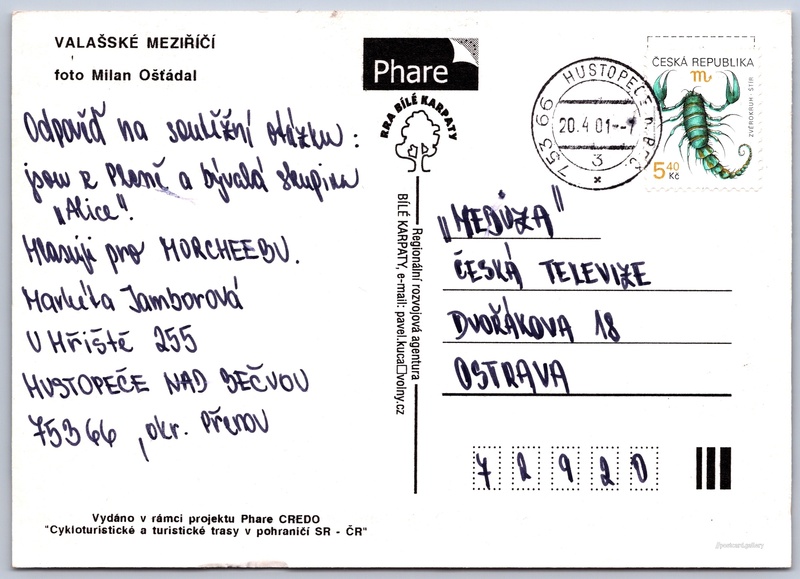 VALAŠSKÉ MEZIŘÍČÍ
foto Milan Ošťádal
Odpověď na soutěžní otázku:
jsou z Plzně a bývalá skupina
„Alice".
Hlasuji pro MORCHEEBU.
Markéta Jamborová
U Hřiště 255
HUSTOPEČE NAD BEČVOU
75366, okr. Přerov
Vydáno v rámci projektu Phare CREDO
"Cykloturistické a turistické trasy v pohraničí SR - ČR"
Phare
RRA BÍLÉ KARPATY
Regionální rozvojová agentura
BÍLÉ KARPATY, e-mail: pavel.kuca□volny.cz
HUSTOPEČE N.BEČ.
20.4.01--7
753 66
3
ČESKÁ REPUBLIKA
ZVĚROKRUH - ŠTÍR
5 40
Kč
„MEDÚZA"
ČESKÁ TELEVIZE
DVOŘÁKOVA 18
OSTRAVA
7 2 9 2 0
//postcard.gallery